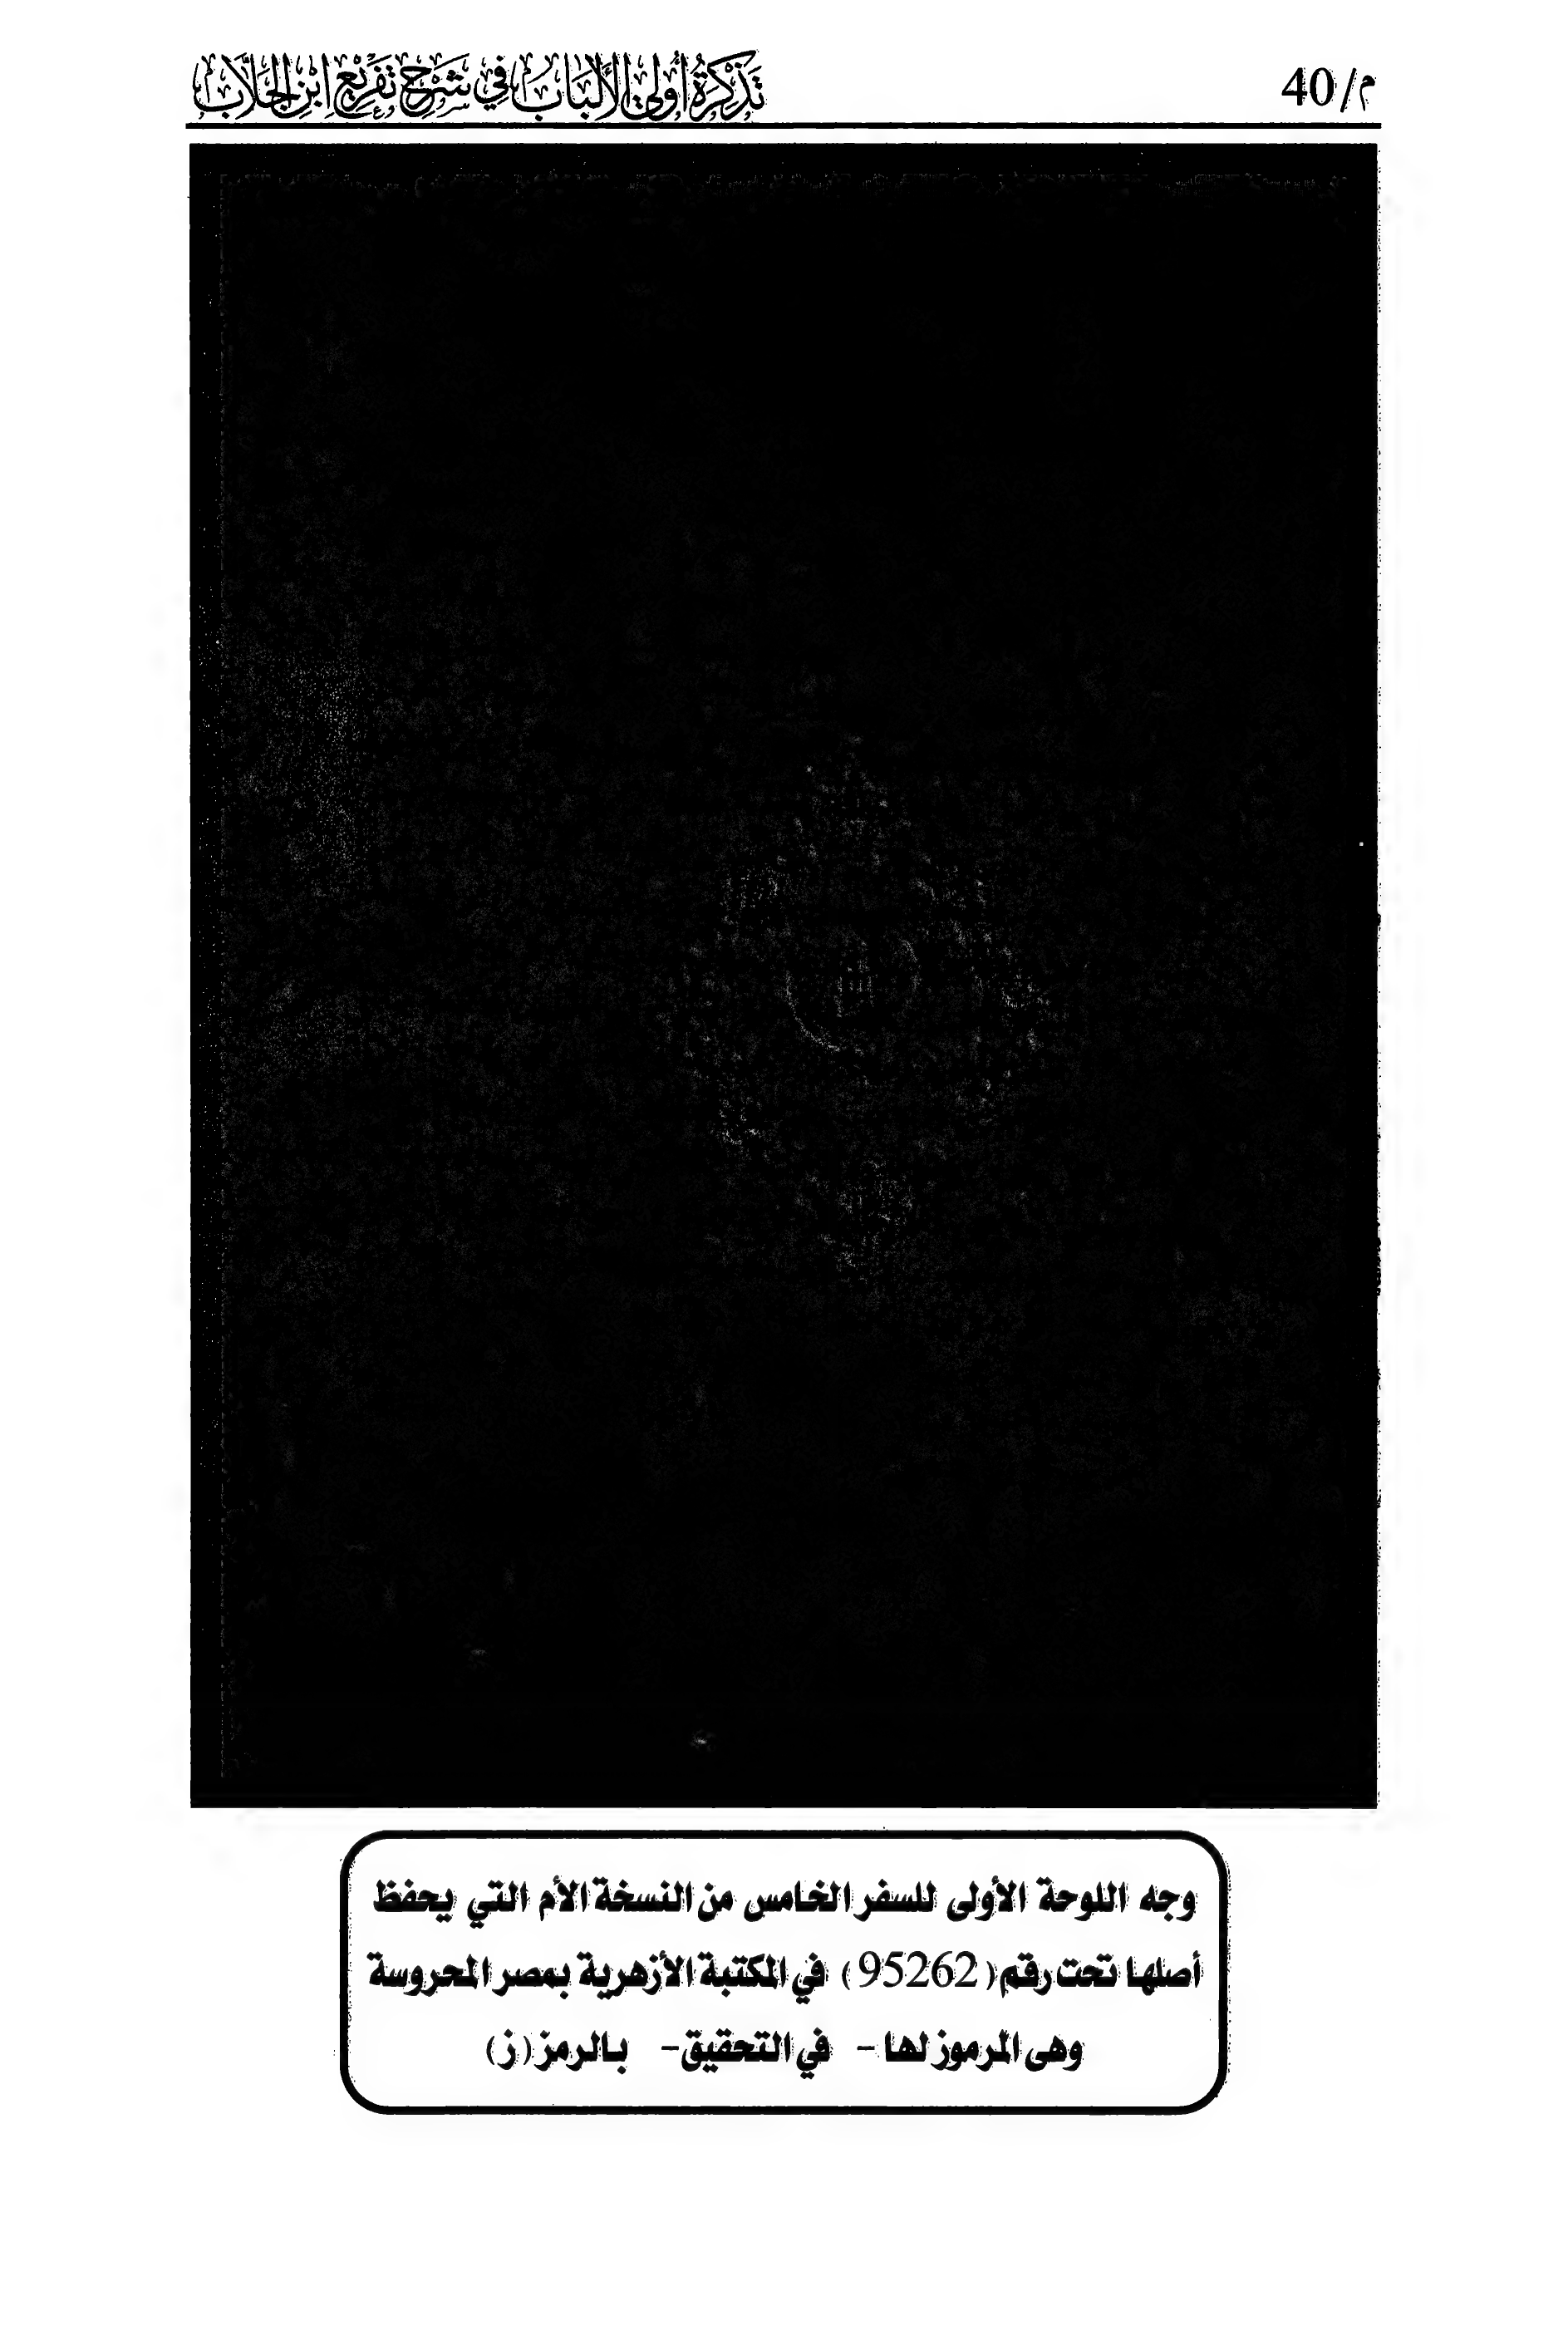 م/40
تَذْكِرَةُ أُولِي الأَلْبَابِ فِي شَرْحِ تَفْرِيعِ ابْنِ الجَلَّابِ
وجه اللوحة الأولى للسفر الخامس من النسخة الأم التي يحفظ
أصلها تحت رقم (95262) في المكتبة الأزهرية بمصر المحروسة
وهى المرموز لها - في التحقيق - بالرمز (ز)